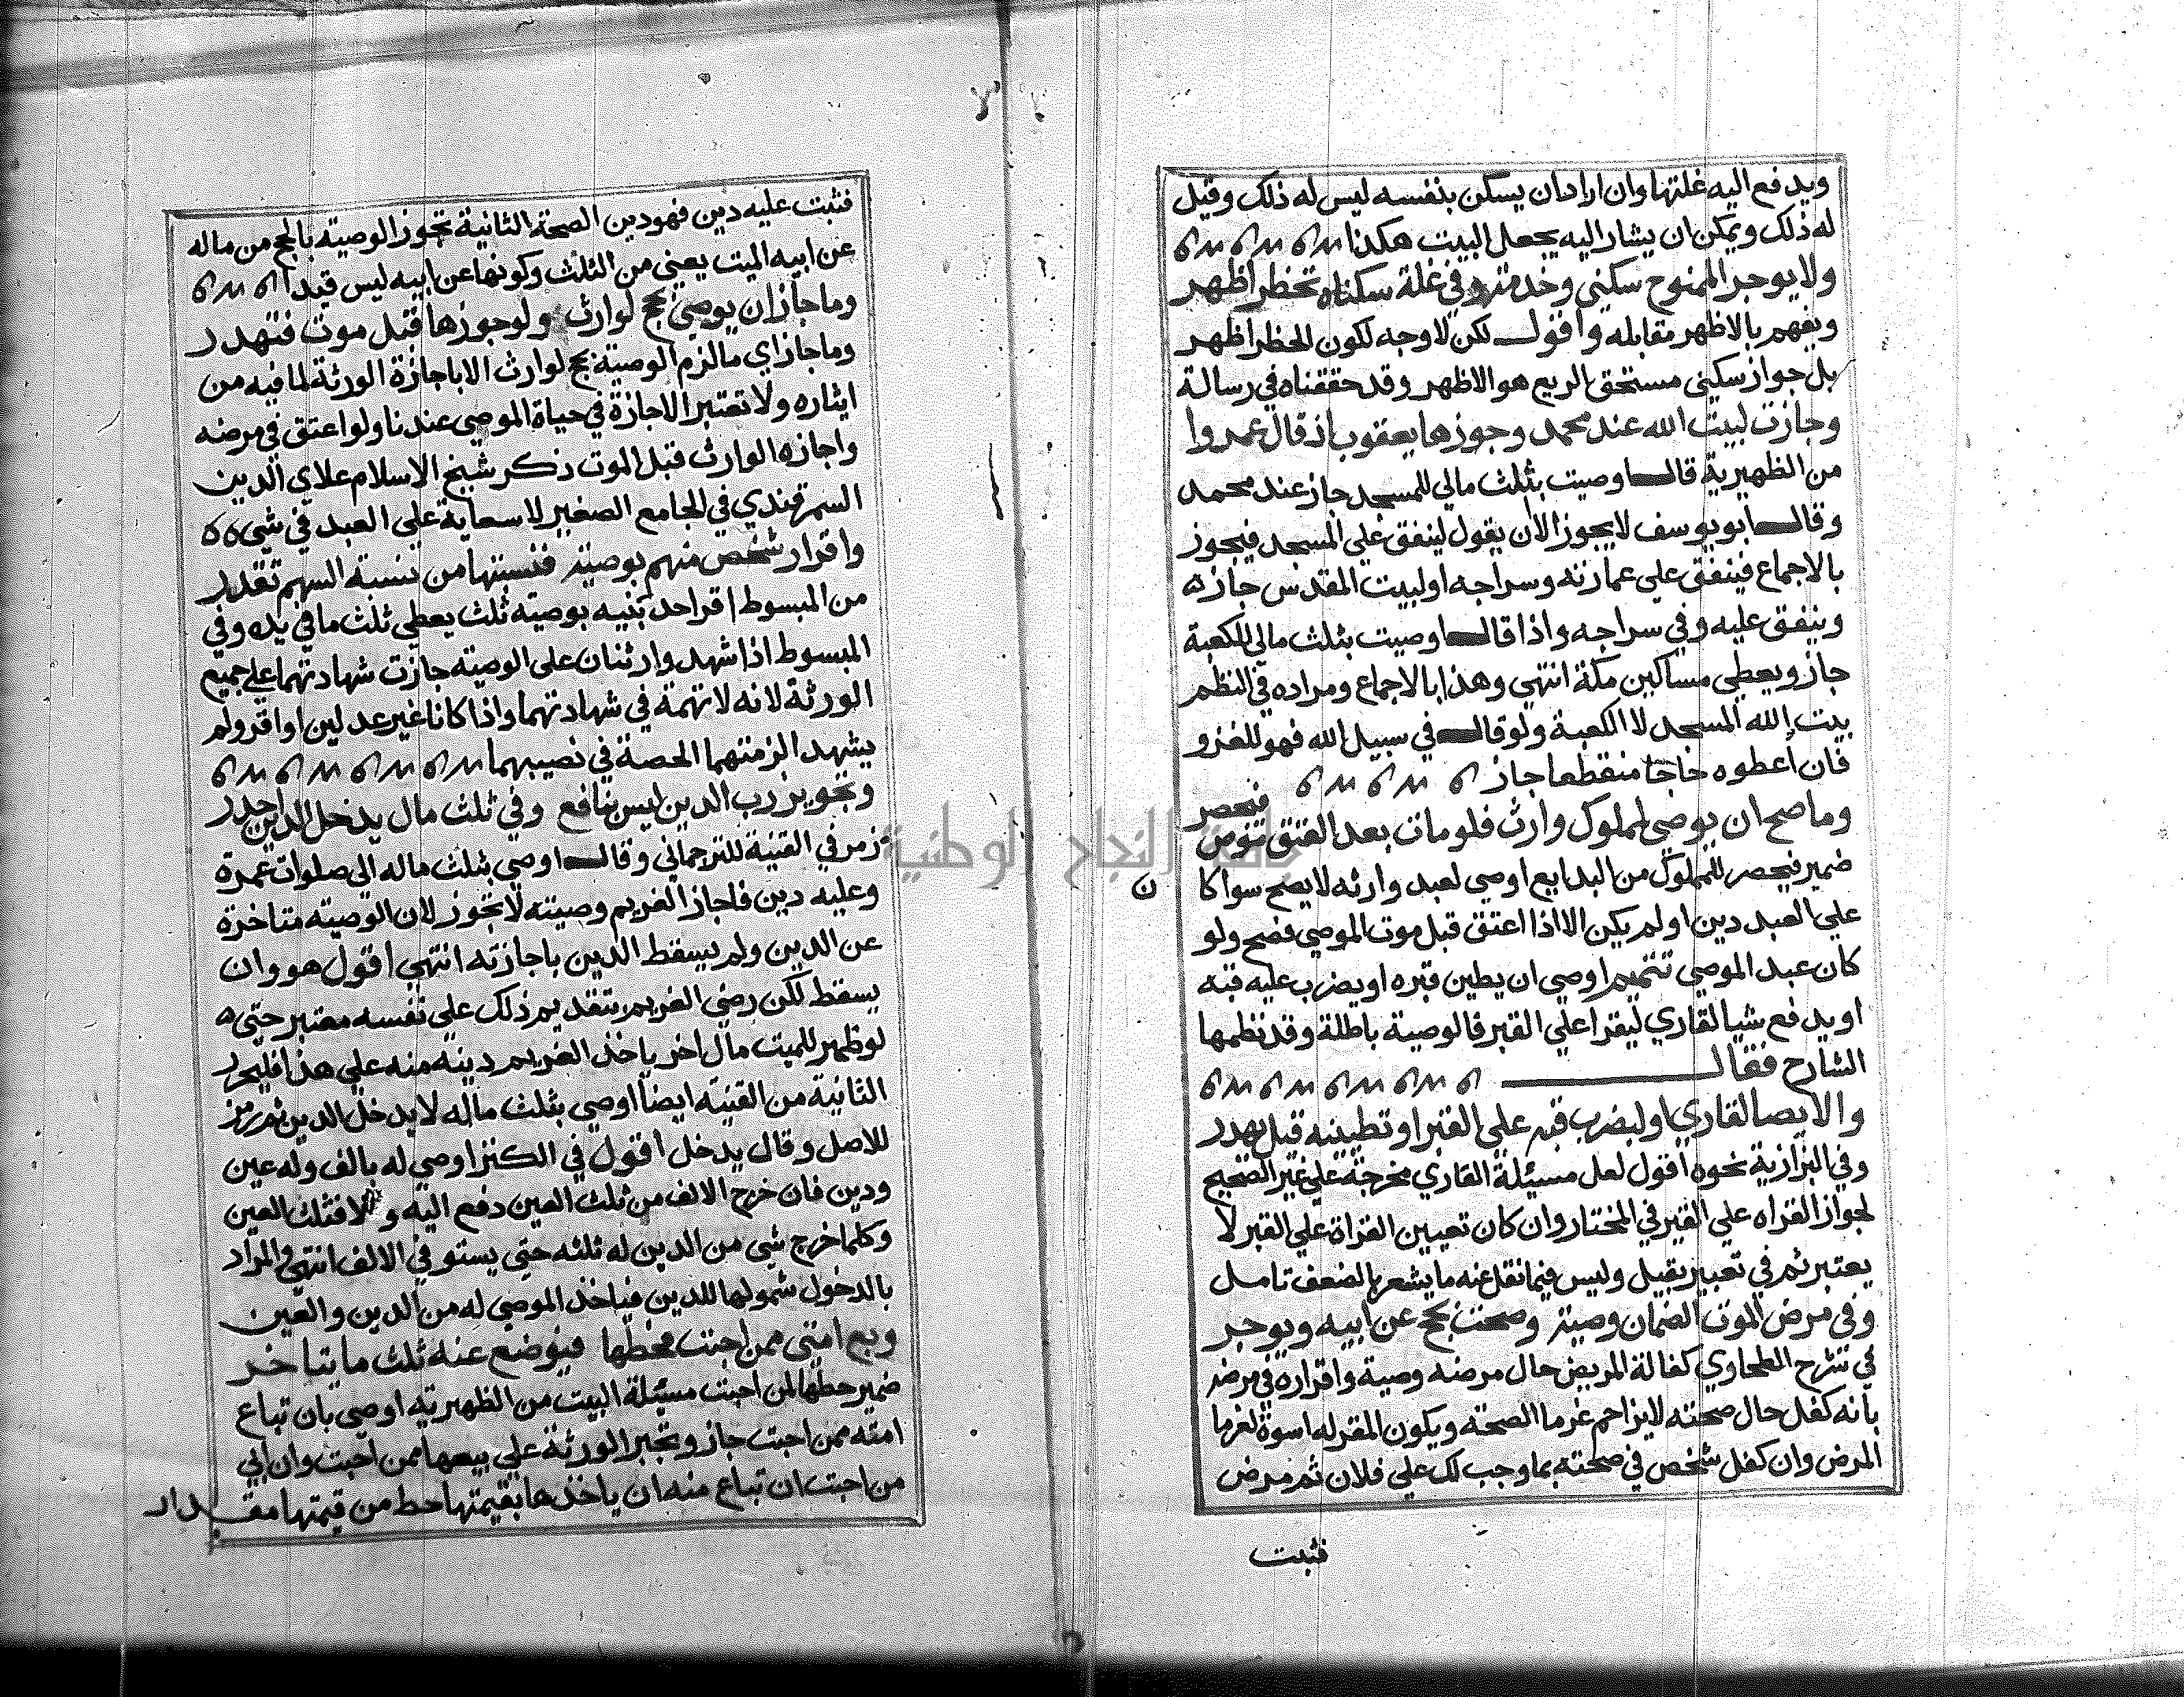 ويدفع اليه غلتها وان اراد ان يسكن بنفسه ليس له ذلك وقيل
له ذلك ويمكن ان يشار اليه يجعل البيت هكذا
ولا يوجر الممنوح سكنى وخدمة وفي غلة سكناه تخطر اظهر
ويفهم بالاظهر مقابله واقول لكن لا وجه لكون الحظر اظهر
بل جواز سكنى مستحق الريع هو الاظهر وقد حققناه في رسالة
وجازت لبيت الله عند محمد وجوزها يعقوب اذ قال عمروا
من الظهيرية قال اوصيت بثلث مالي للمسجد جاز عند محمد
وقال ابو يوسف لا يجوز الا ان يقول لينفق علي المسجد فيجوز
بالاجماع فينفق علي عمارته وسراجه او لبيت المقدس جاز
وينفق عليه وفي سراجه واذا قال اوصيت بثلث مالي للكعبة
جاز ويعطي مساكين مكة انتهي وهذا بالاجماع ومراده في النظم
بيت الله المسجد لا الكعبة ولو قال في سبيل الله فهو للغزو
فان اعطوه حاجا منقطعا جاز
وما صح ان يوصي لمملوك وارث فلو مات بعد العتق فيحصر
ضمير فيحصر للمملوك من البدايع اوصي لعبد وارثه لا يصح سوا كا
ن
علي العبد دين اولم يكن الا اذا اعتق قبل موت الموصي فصح ولو
كان عبد الموصي تتميم اوصي ان يطين قبره او يضرب عليه قبه
او يدفع شيا لقاري ليقرا علي القبر فالوصية باطلة وقد نظمها
الشارح فقال
والايصا لقاري او ليضرب قبه علي القبر او تطيينه قيل يهدر
وفي البزازية نحوه اقول لعل مسئلة القاري مخرجة علي غير الصحيح
لجواز القراه علي القبر في المختار وان كان تعيين القراة علي القبر لا
يعتبر ثم في تعبير بقيل وليس فيما نقل عنه ما يشعر بالضعف تامل
وفي مرض الموت الضمان وصية وصحت بحج عن ابيه ويوجر
في شرح الطحاوي كفالة المريض حال مرضه وصية واقراره في مرضه
بانه كفل حال صحته لا يزاحم غرما الصحته ويكون المقر له اسوة لغرما
المرض وان كفل شخص في صحته بما وجب لك علي فلان ثم مرض
فثبت
فثبت عليه دين فهو دين الصحة الثانية تجوز الوصيته بالحج من ماله
عن ابيه الميت يعني من الثلث وكونها عن ابيه ليس قيدا
وما جاز ان يوصي بحج لوارث ولو جوزها قبل موت فتهدر
وما جاز اي مالزم الوصية بحج لوارث الا باجازة الورثة لما فيه من
ايثاره ولا تعتبر الاجازة في حياة الموصي عندنا ولو اعتق في مرضه
واجازه الوارث قبل الموت ذكر شيخ الاسلام علاي الدين
السمرقندي في الجامع الصغير لا سعاية علي العبد في شي
واقرار شخص منهم بوصية فنسبتها من نسبة السهم تقدر
من المبسوط اقر احد بنيه بوصيته ثلث يعطي ثلث ما في يده وفي
المبسوط اذا شهد وارثنان على الوصيته جازت شهادتهما علي جميع
الورثة لانه لا تهمة في شهادتهما واذا كانا غير عدلين او اقر ولم
يشهد الزمتهما الحصة في نصيبهما
وتجويز رب الدين ليس بنافع وفي ثلث مال يدخل الدين اجدر
زمر في القنية للترجماني وقال اوصي بثلث ماله الي صلوات عمرة
وعليه دين فاجاز الغريم وصيته لا تجوز لان الوصيته متاخرة
عن الدين ولم يسقط الدين باجازته انتهي اقول هو وان
يسقط لكن رضي الغريم بتقديم ذلك علي نفسه معتبر حتي
لو ظهر للميت مال اخر ياخذ الغريم دينه منه علي هذا فليحرر
الثانية من القنيته ايضا اوصي بثلث ماله لا يدخل الدين ثم رمز
للاصل وقال يدخل اقول في الكنز اوصي له بالف وله عين
ودين فان خرج الالف من ثلث العين دفع اليه والا فثلث العين
وكلما خرج شي من الدين له ثلثه حتي يستوفي الالف انتهي والمراد
بالدخول شمولها للدين فياخذ الموصي له من الدين والعين
وبع امتي ممن احبت فحطها فيوضع عنه ثلث ما يتاخر
ضمير حطها لمن احبت مسئلة البيت من الظهيريه اوصي بان تباع
امته ممن احبت جاز وتجبر الورثة علي بيعها ممن احبت وان ابي
من احبت ان تباع منه ان ياخذها بقيمتها حط من قيمتها مقدار
جامعة النجاح الوطنية